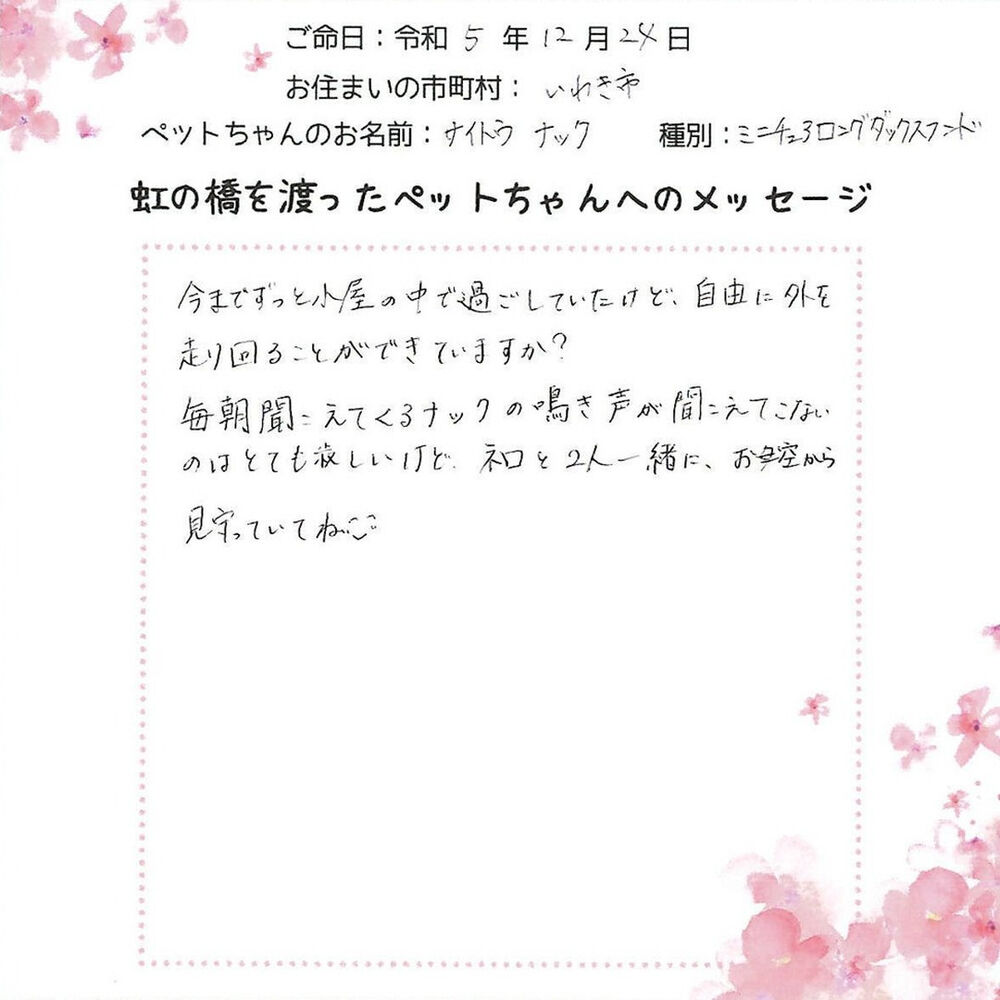 ご命日：令和 5 年 12 月 24 日
お住まいの市町村： いわき市
ペットちゃんのお名前：ナイトウ ナック 種別：ミニチュアロングダックスフンド
虹の橋を渡ったペットちゃんへのメッセージ
今までずっと小屋の中で過ごしていたけど、自由に外を
走り回ることができていますか？
毎朝聞こえてくるナックの鳴き声が聞こえてこない
のはとても淋しいけど、ネロと2人一緒に、お空から
見守っていてね